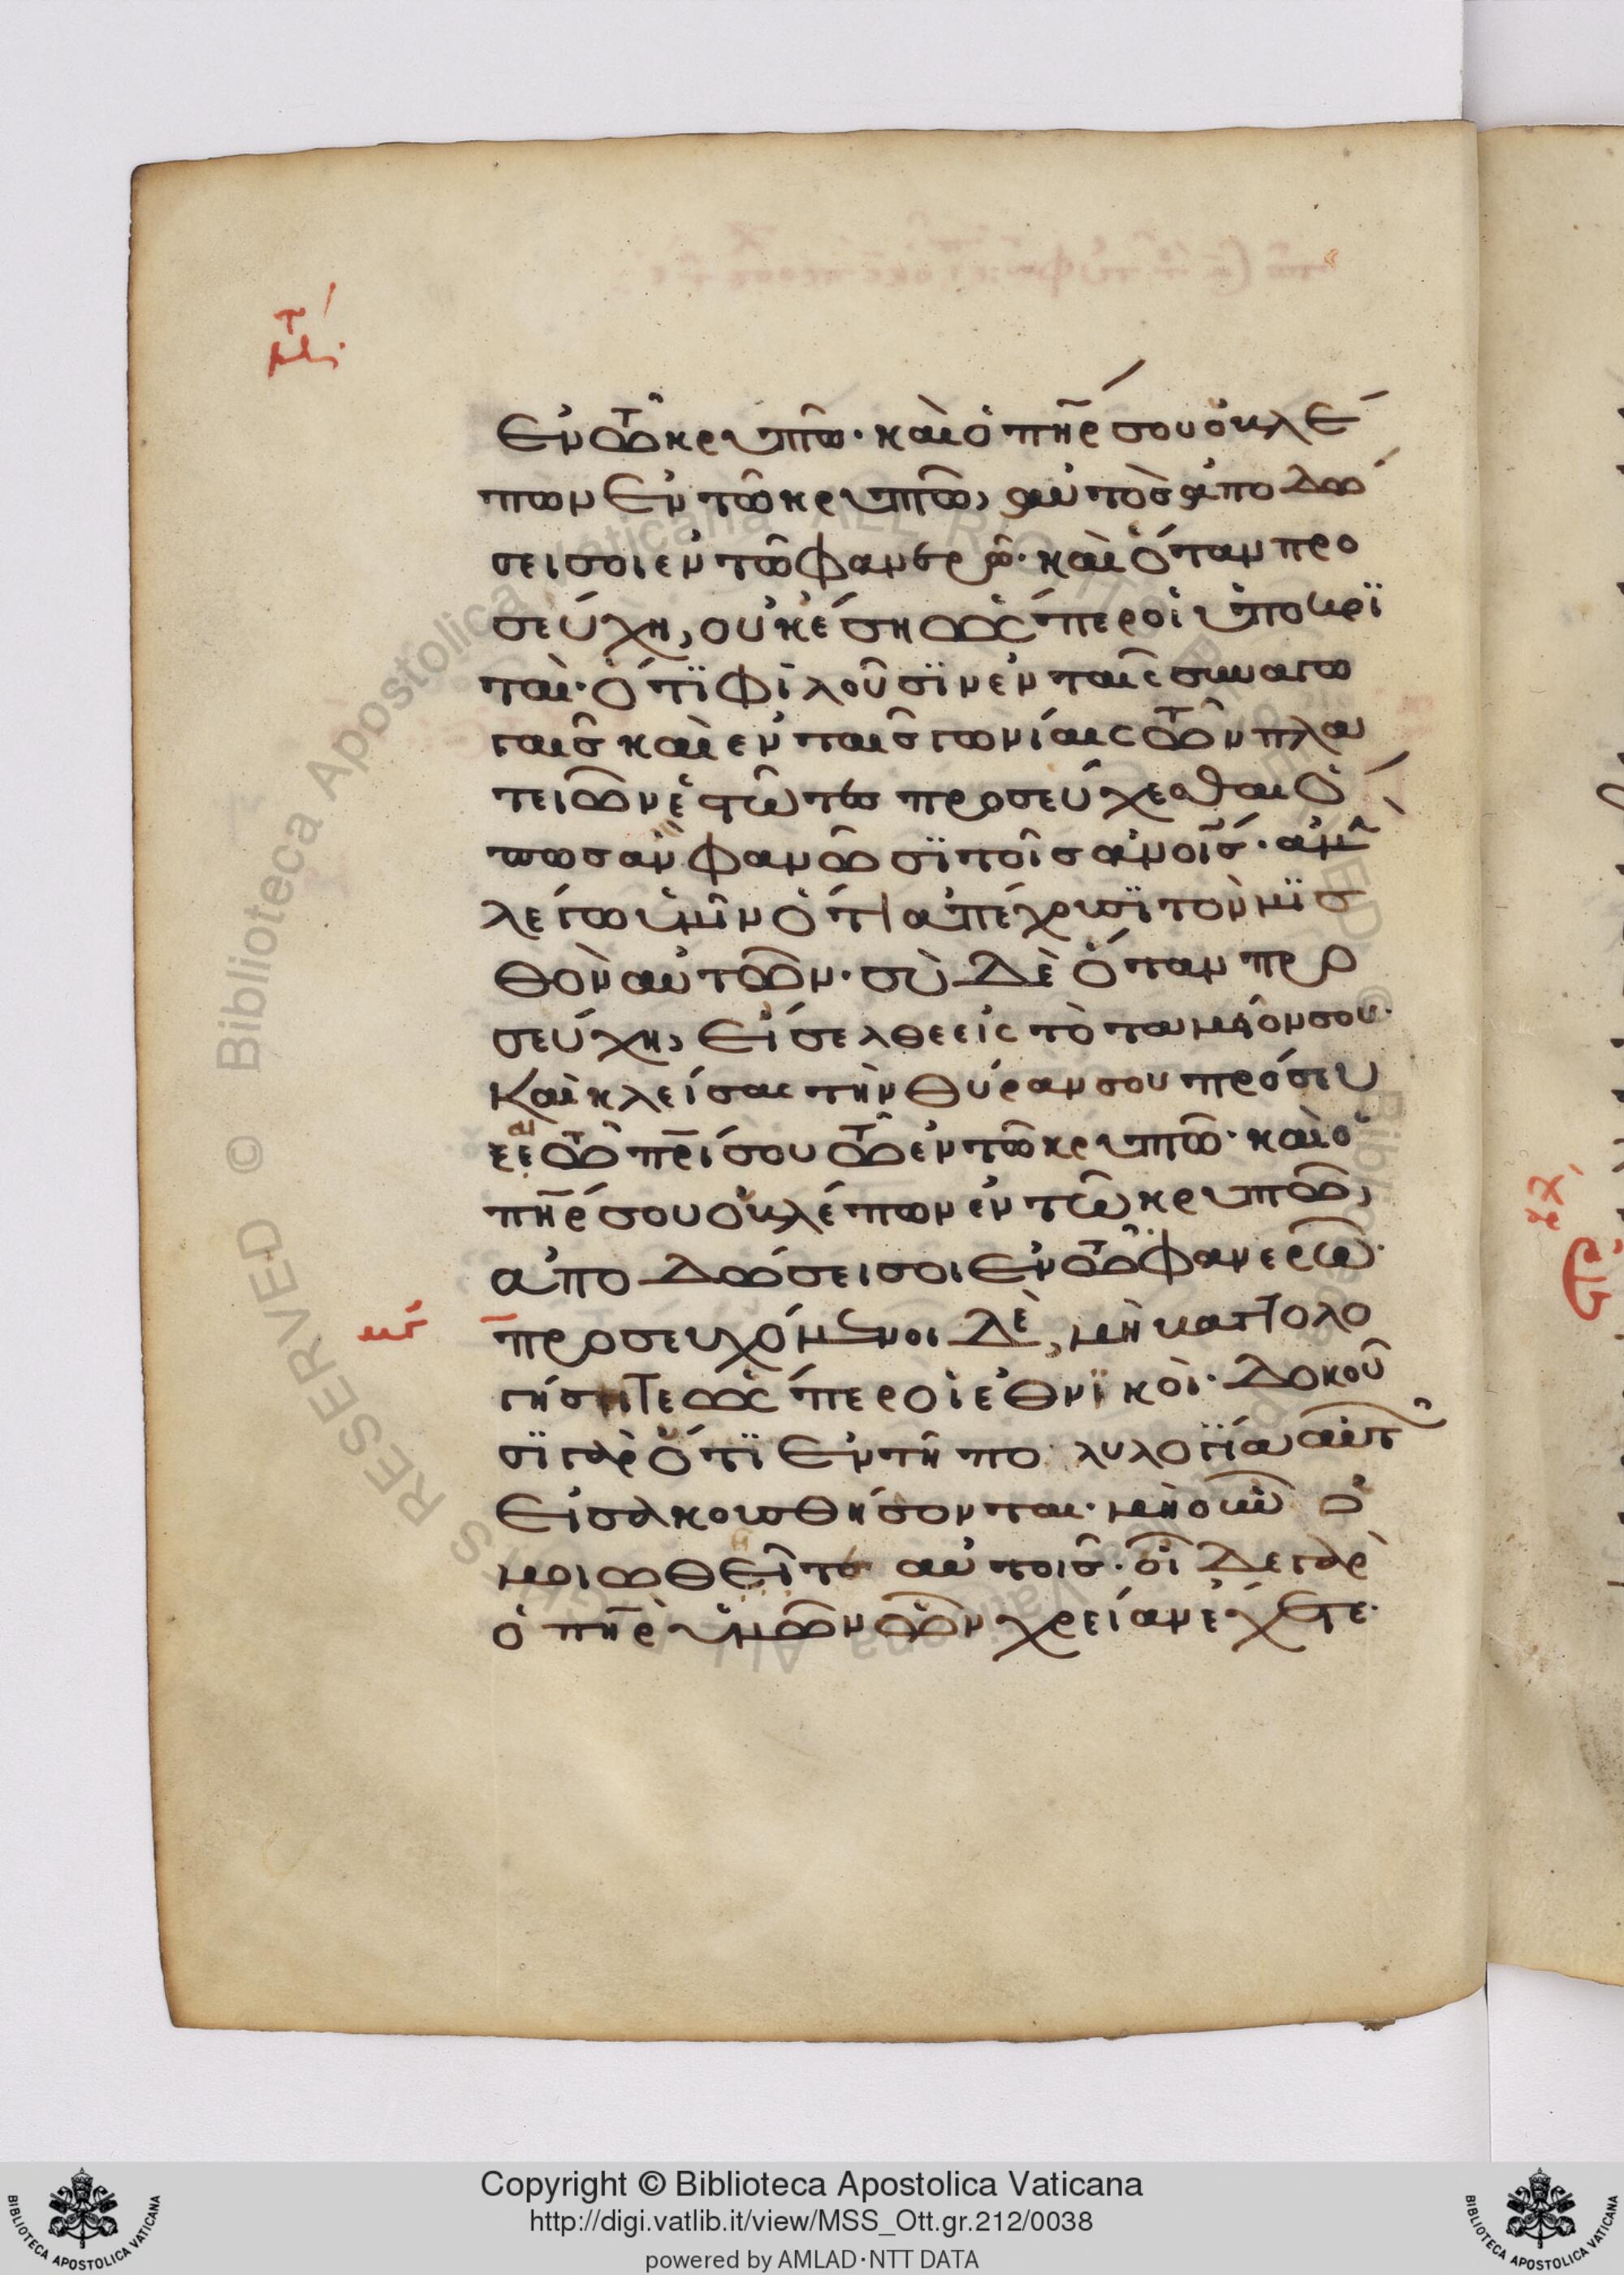 ἐν τῶ κρυπτῶ· καὶ ὁ πηρ σου ὁ βλέ
πων ἐν τῶ κρυπτῶ, αὐτὸς ἀποδώ
σει σοι ἐν τῶ φανερῶ· καὶ ὅταν προ
σεύχη, οὐκ ἔση ὥσπερ οἱ ὑποκρϊ
ταὶ· ὅτϊ φιλοῦσϊν ἐν ταῖς συναγω
γαῖς καὶ ἐν ταῖς γωνίαις τῶν πλα
τειῶν ἑστῶτες προσεύχεσθαι ὅ
πως ἂν φανῶσϊ τοῖς ἀνοῖς· ἀμὴ
λέγω ὑμῖν ὅτι ἀπέχουσϊ τὸν μϊσ
θὸν αὐτῶν· σὺ δὲ ὅταν προ
σεύχη, εἴσελθε εἰς τὸ ταμεῖόν σου·
Καὶ κλείσας τὴν θύραν σου πρόσευ
ξαι τῶ πρί σου τῶ ἐν τῶ κρυπτῶ· καὶ ὁ
πηρ σου ὁ βλέπων ἐν τῶ κρυπτῶ,
ἀποδώσει σοι ἐν τῶ φανερῶ·
προσευχόμενοι δὲ, μὴ βαττολο
γήσητε ὥσπερ οἱ ἐθνϊκοὶ· δοκοῦ
σϊ γὰρ ὅτϊ ἐν τῆ πολυλογϊία αὐτ
εἰσακουσθήσονται· μὴ οὖν ὁ
μοιωθεῖτε αὐτοῖς· οἶδε γὰρ
ὁ πηρ ὑμῶν ὧν χρείαν ἔχετε·
Copyright © Biblioteca Apostolica Vaticana
http://digi.vatlib.it/view/MSS_Ott.gr.212/0038
powered by AMLAD·NTT DATA
BIBLIOTECA APOSTOLICA VATICANA
BIBLIOTECA APOSTOLICA VATICANA